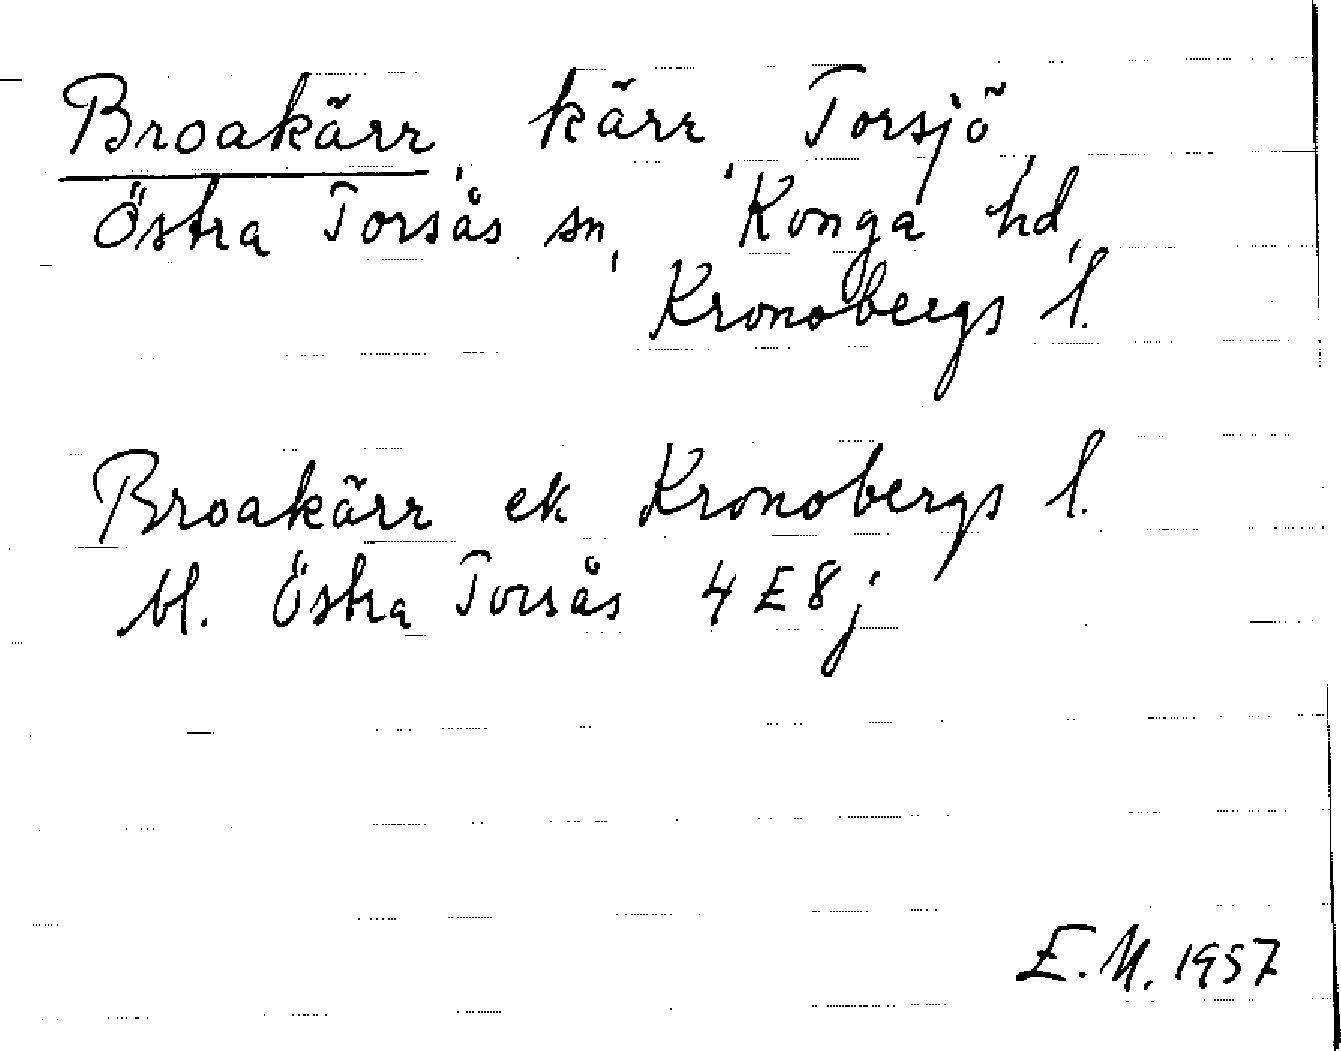 Broakärr, kärr, Torsjö,
Östra Torsås sn, Konga hd,
Kronobergs l.
Broakärr ek Kronobergs l.
bl. Östra Torsås 4E8j
E.M. 1957